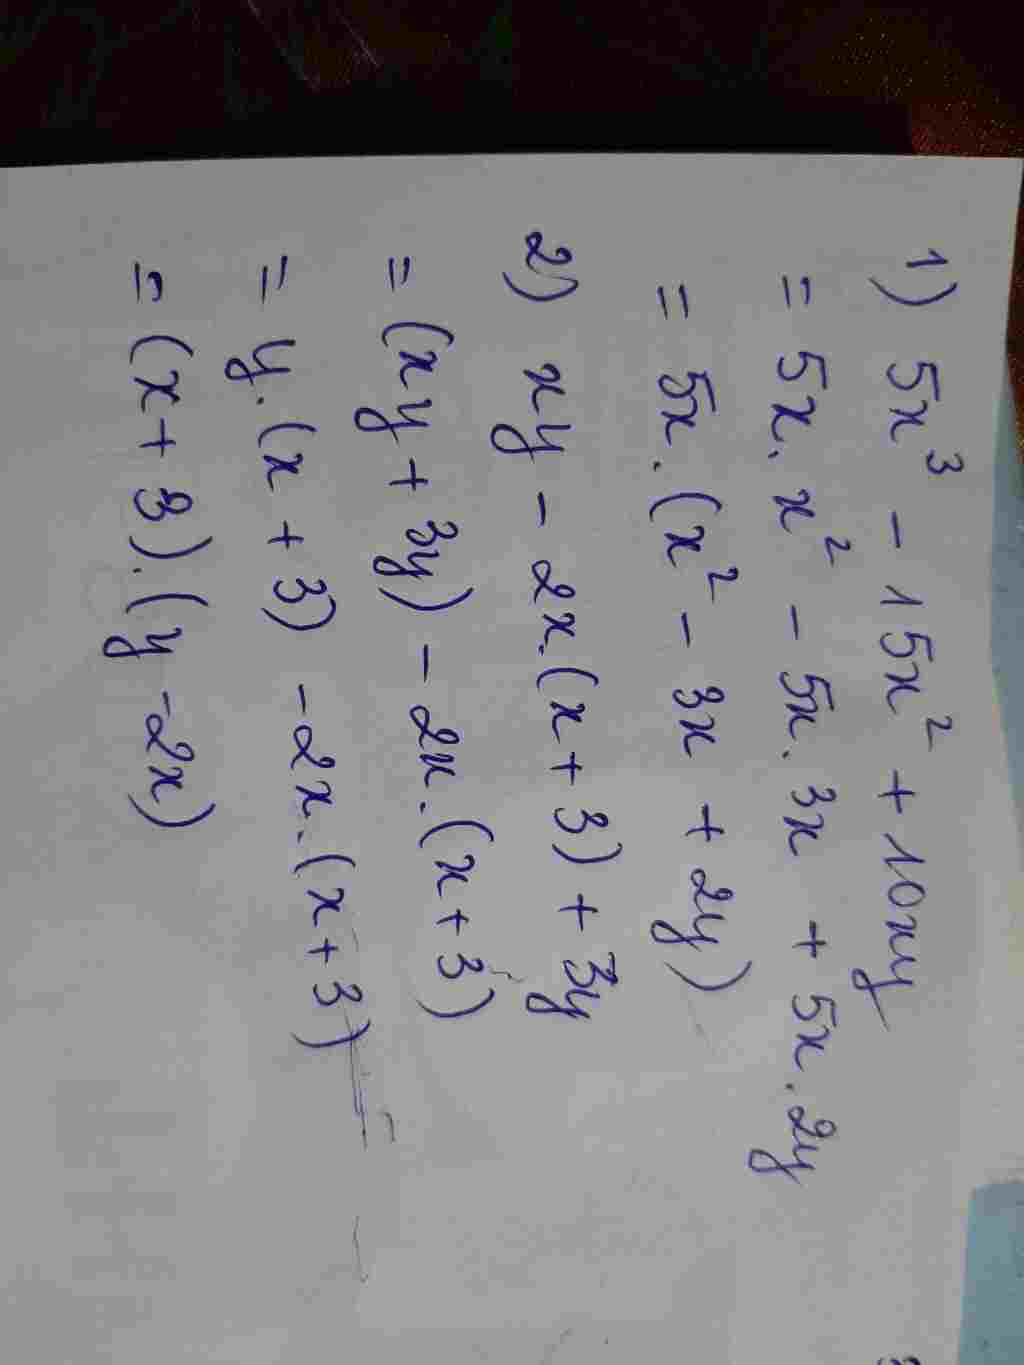 1) 5x³ - 15x² + 10xy
= 5x. x² - 5x. 3x + 5x. 2y
= 5x. (x² - 3x + 2y)
2) xy - 2x.(x + 3) + 3y
= (xy + 3y) - 2x.(x + 3)
= y.(x + 3) - 2x.(x + 3)
= (x + 3).(y - 2x)